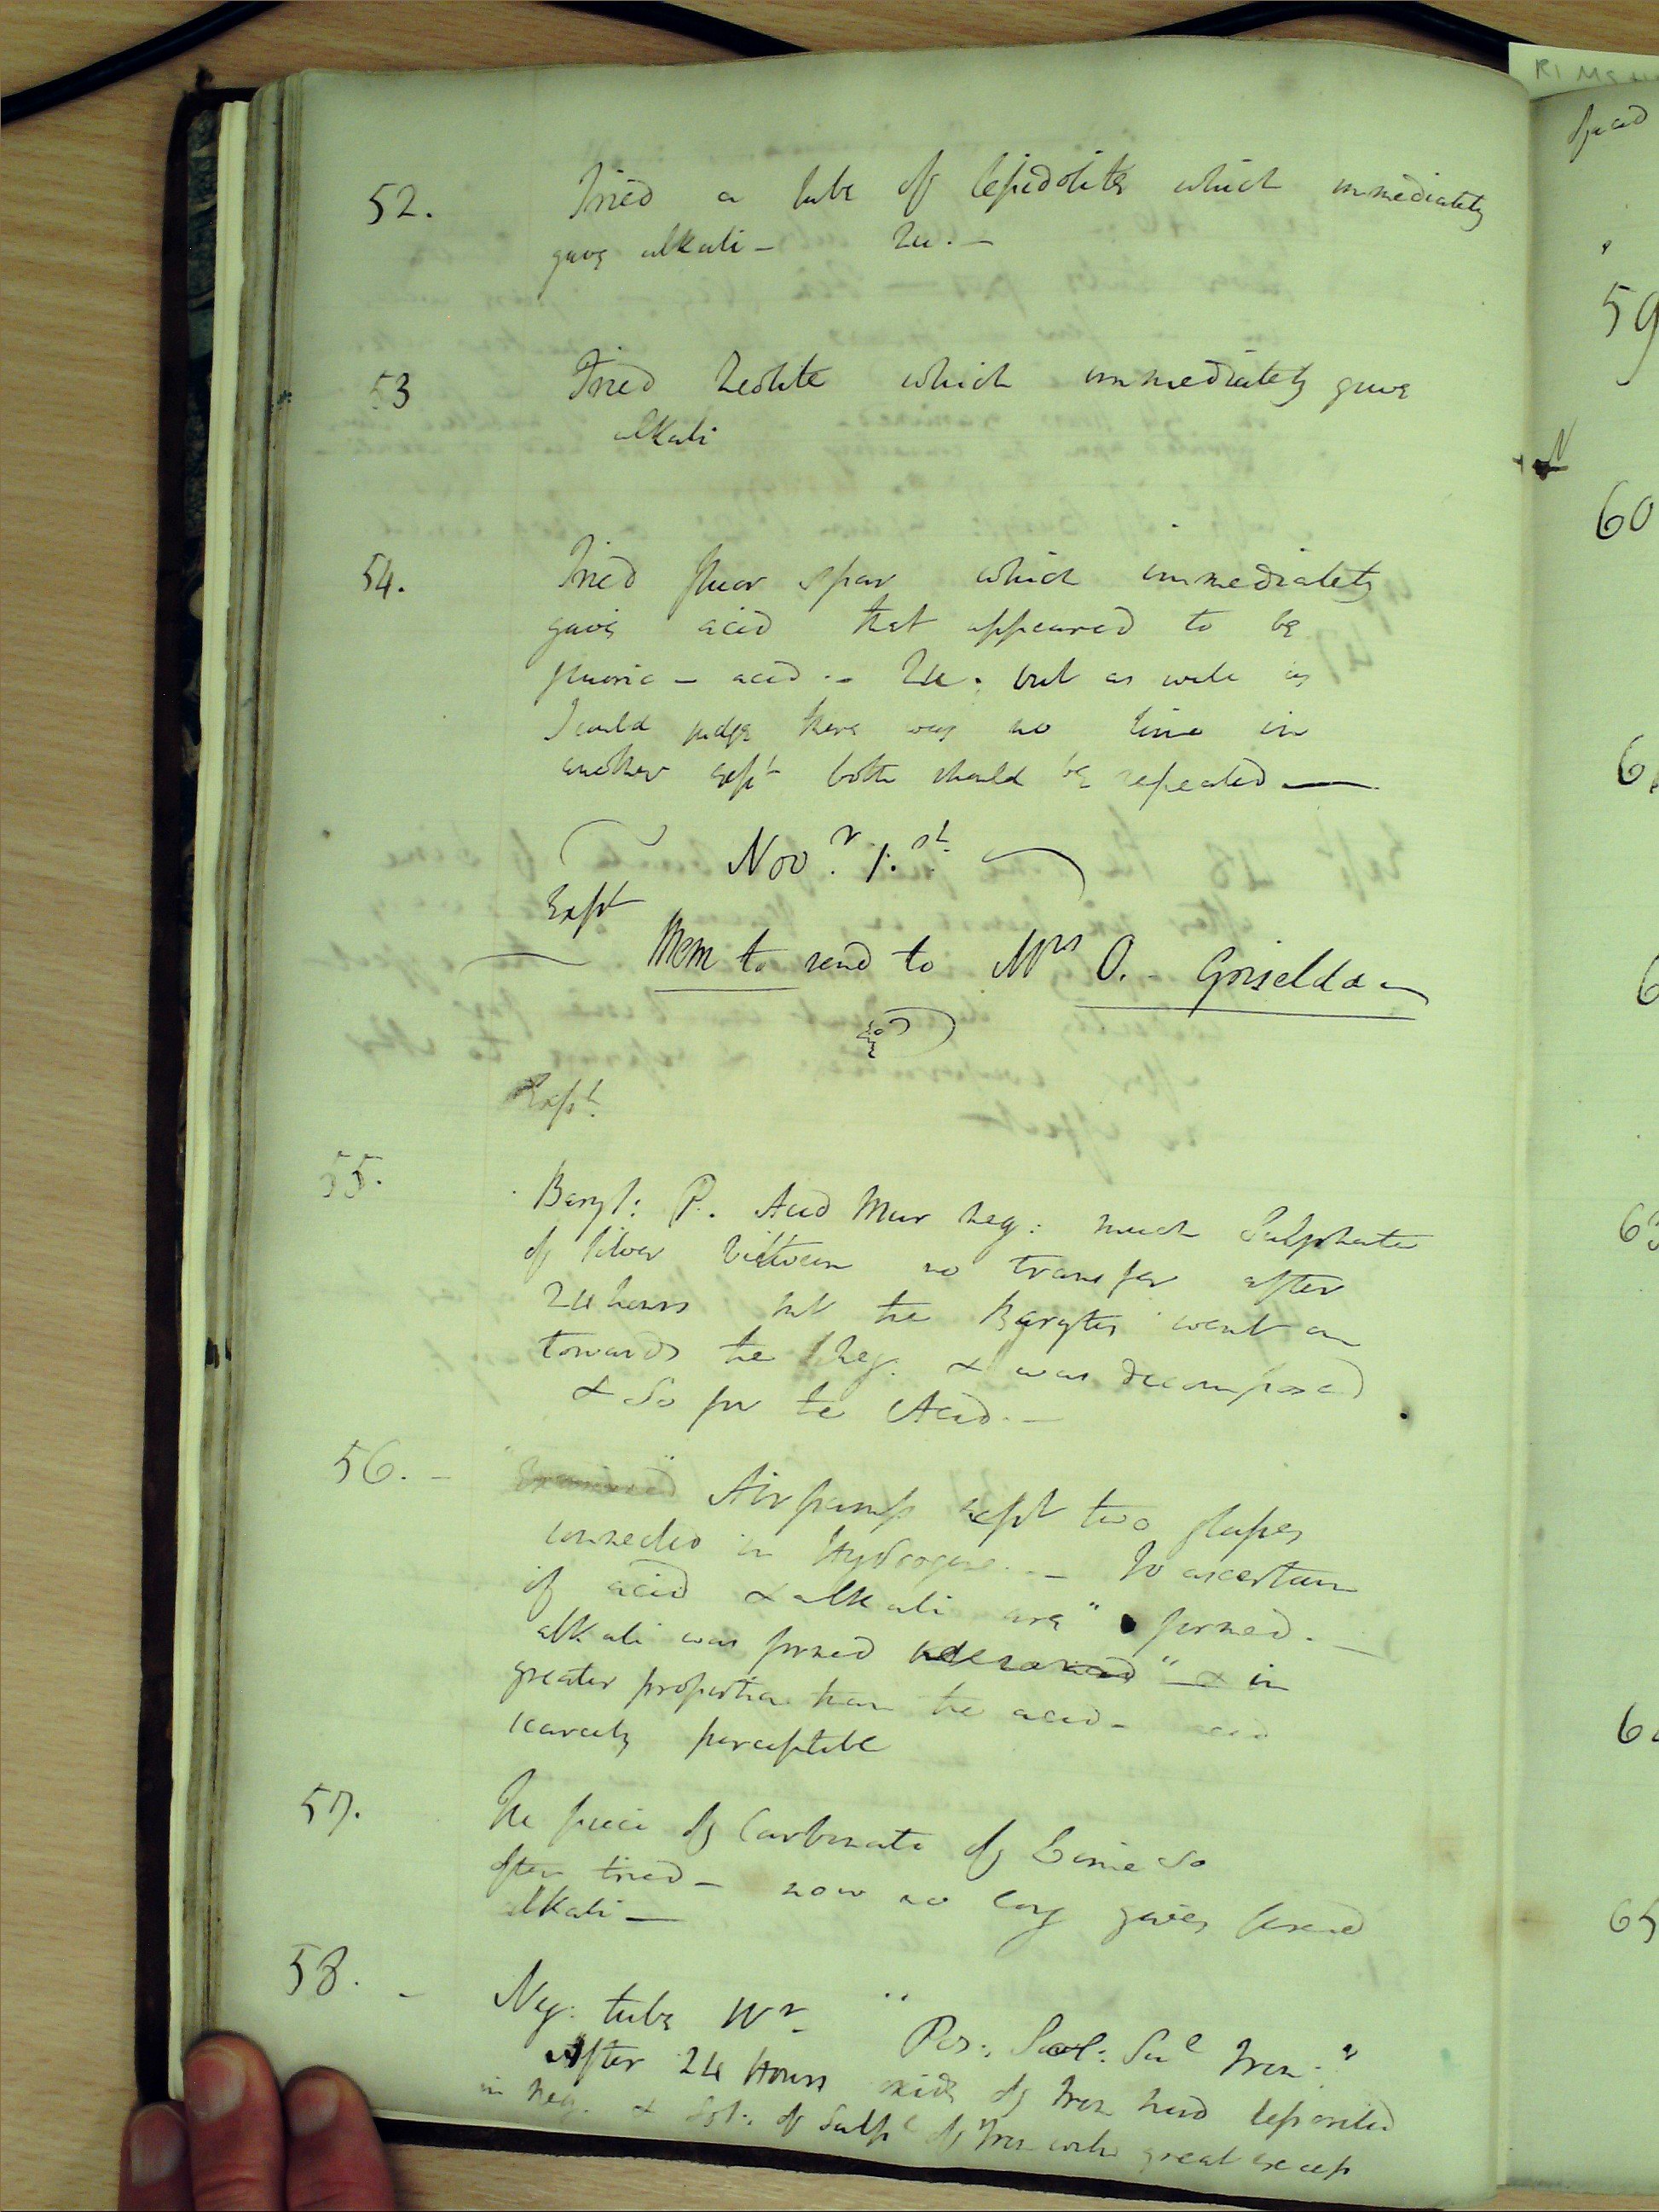 RI MS
52. Tried a tube of lepidolite which immediately
gave alkali — 24. —
53 Tried zeolite which immediately gave
alkali
54. Tried fluor spar which immediately
gave acid that appeared to be
fluoric — acid .- 24. but as well as
I could judge there was no lime in
another expt both should be repeated —
Novr. 1.st
Expt
Mem to send to Mrs O. - Griselda —
Expt.
55. Baryt: P. Acid Mur neg: much Sulphate
of silver between no transfer after
24 hours but the Barytes went on
towards the Neg. & was decomposed
& so for the Acid. —
56. - Examined Air pump expt two glasses
connected in Hydrogene. — To ascertain
if acid & alkali are" formed. —
alkali was formed " & in
greater proportion than the acid - acid
scarcely perceptible
57. The piece of Carbonate of Lime so
often tried — now no long gives fixed
alkali —
58. - Neg. tube Wr. Pos: Sol: Sul Iron."
After 24 Hours oxide of Iron had deposited
in neg. & Sol: of Sulp of Iron with great excess
59
60